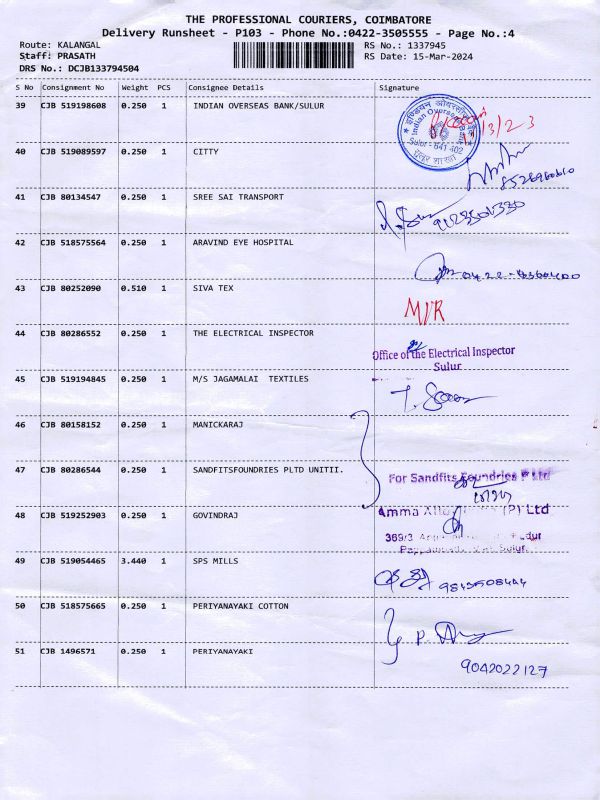 THE PROFESSIONAL COURIERS, COIMBATORE
Delivery Runsheet - P103 - Phone No.:0422-3505555 - Page No.:4
Route: KALANGAL RS No.: 1337945
Staff: PRASATH RS Date: 15-Mar-2024
DRS No.: DCJB133794504
S No Consignment No Weight PCS Consignee Details Signature
39 CJB 519198608 0.250 1 INDIAN OVERSEAS BANK/SULUR
Indian Overseas Bank
Sulur - 641 402
40 CJB 519089597 0.250 1 CITTY
41 CJB 80134547 0.250 1 SREE SAI TRANSPORT
42 CJB 518575564 0.250 1 ARAVIND EYE HOSPITAL
43 CJB 80252090 0.510 1 SIVA TEX
44 CJB 80286552 0.250 1 THE ELECTRICAL INSPECTOR
Office of the Electrical Inspector
Sulur
45 CJB 519194845 0.250 1 M/S JAGAMALAI TEXTILES
46 CJB 80158152 0.250 1 MANICKARAJ
47 CJB 80286544 0.250 1 SANDFITSFOUNDRIES PLTD UNITII.
For Sandfits Foundries P Ltd
48 CJB 519252903 0.250 1 GOVINDRAJ
Amma (P) Ltd
369/3
Sulur.
49 CJB 519054465 3.440 1 SPS MILLS
50 CJB 518575665 0.250 1 PERIYANAYAKI COTTON
51 CJB 1496571 0.250 1 PERIYANAYAKI
9042022127